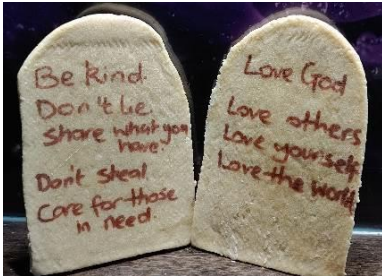 Be kind.
Don't lie.
Share what you
have.
Don't steal
Care for those
in need.
Love God
Love others
Love yourself
Love the world